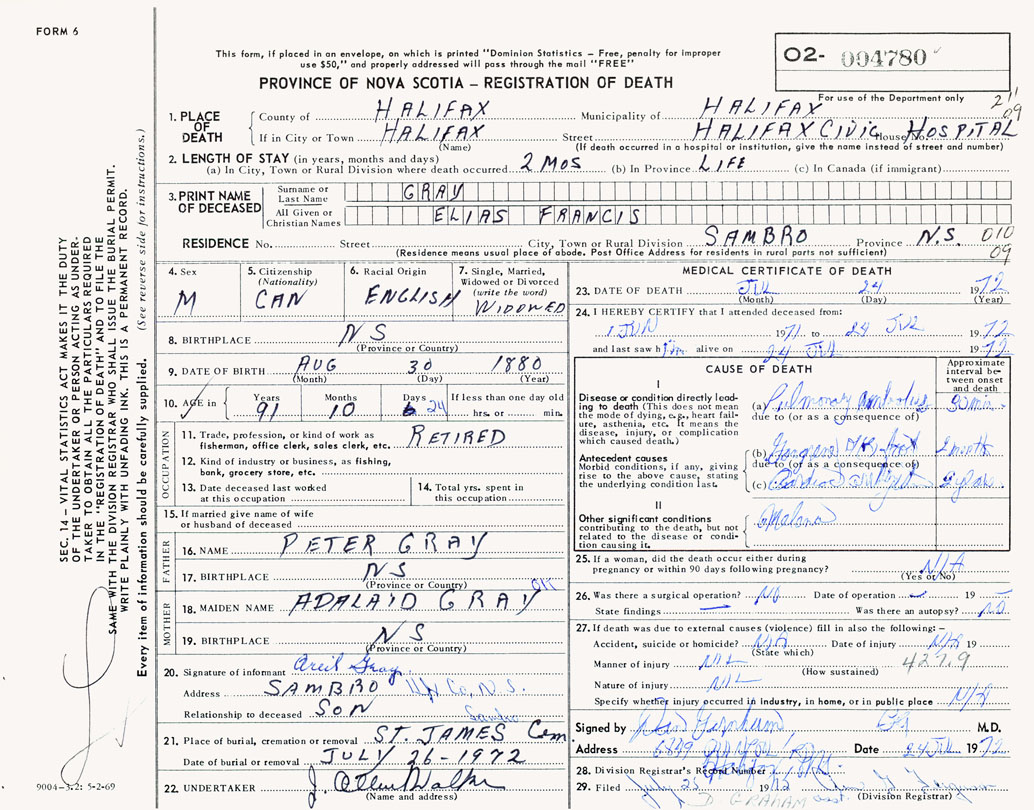 FORM 6
This form, if placed in an envelope, on which is printed "Dominion Statistics – Free, penalty for improper
use $50," and properly addressed will pass through the mail "FREE"
PROVINCE OF NOVA SCOTIA – REGISTRATION OF DEATH
02- 004780
For use of the Department only
1. PLACE OF DEATH
County of HALIFAX Municipality of HALIFAX
If in City or Town HALIFAX Street HALIFAX CIVIC House No. HOSPITAL
(Name) (If death occurred in a hospital or institution, give the name instead of street and number)
2. LENGTH OF STAY (in years, months and days)
(a) In City, Town or Rural Division where death occurred 2 MOS (b) In Province LIFE (c) In Canada (if immigrant)
3. PRINT NAME OF DECEASED
Surname or Last Name GRAY
All Given or Christian Names ELIAS FRANCIS
RESIDENCE No. Street City, Town or Rural Division SAMBRO Province N.S. 010
09
(Residence means usual place of abode. Post Office Address for residents in rural parts not sufficient)
4. Sex M
5. Citizenship (Nationality) CAN
6. Racial Origin ENGLISH
7. Single, Married, Widowed or Divorced (write the word) WIDOWED
8. BIRTHPLACE NS
(Province or Country)
9. DATE OF BIRTH AUG 30 1880
(Month) (Day) (Year)
10. AGE in Years 91 Months 10 Days 24 If less than one day old hrs. or min.
OCCUPATION
11. Trade, profession, or kind of work as fisherman, office clerk, sales clerk, etc. RETIRED
12. Kind of industry or business, as fishing, bank, grocery store, etc.
13. Date deceased last worked at this occupation
14. Total yrs. spent in this occupation
15. If married give name of wife or husband of deceased
FATHER
16. NAME PETER GRAY
17. BIRTHPLACE NS
(Province or Country)
MOTHER
18. MAIDEN NAME ADALAID GRAY
19. BIRTHPLACE NS
(Province or Country)
20. Signature of informant Gray
Address SAMBRO Co, N.S.
Relationship to deceased SON Sambro
21. Place of burial, cremation or removal ST. JAMES Cem
Date of burial or removal JULY 26-1972
22. UNDERTAKER J.
(Name and address)
MEDICAL CERTIFICATE OF DEATH
23. DATE OF DEATH JUL 24 1972
(Month) (Day) (Year)
24. I HEREBY CERTIFY that I attended deceased from:
1 JUN 1971 to 24 JUL 1972
and last saw him alive on 24 JUL 1972
CAUSE OF DEATH
Approximate interval between onset and death
I
Disease or condition directly leading to death (This does not mean the mode of dying, e.g., heart failure, asthenia, etc. It means the disease, injury, or complication which caused death.)
(a) Pulmonary Embolus 30 min.
due to (or as a consequence of)
Antecedent causes
Morbid conditions, if any, giving rise to the above cause, stating the underlying condition last.
(b) Gangrene foot month
due to (or as a consequence of)
(c)
II
Other significant conditions contributing to the death, but not related to the disease or condition causing it.
Melena
25. If a woman, did the death occur either during pregnancy or within 90 days following pregnancy? N/A
(Yes or No)
26. Was there a surgical operation? NO Date of operation – 19 –
State findings – Was there an autopsy? NO
27. If death was due to external causes (violence) fill in also the following:–
Accident, suicide or homicide? N/A Date of injury N/A 19
(State which)
Manner of injury NIL 427.9
(How sustained)
Nature of injury NIL
Specify whether injury occurred in industry, in home, or in public place N/A
Signed by M.D.
Address Date 24 JUL 1972
28. Division Registrar's Record Number
29. Filed July 25 1972
D. GRAHAM
(Division Registrar)
SEC. 14 – VITAL STATISTICS ACT MAKES IT THE DUTY
OF THE UNDERTAKER OR PERSON ACTING AS UNDER-
TAKER TO OBTAIN ALL THE PARTICULARS REQUIRED
IN THE "REGISTRATION OF DEATH" AND TO FILE THE
SAME WITH THE DIVISION REGISTRAR WHO SHALL ISSUE THE BURIAL PERMIT.
WRITE PLAINLY WITH UNFADING INK. THIS IS A PERMANENT RECORD.
Every item of information should be carefully supplied. (See reverse side for instructions.)
9004–3.2: 5-2-69